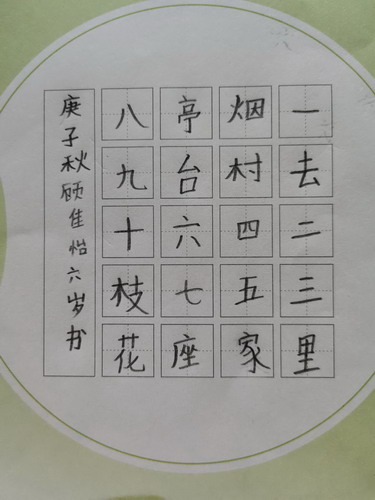 一去二三里
烟村四五家
亭台六七座
八九十枝花
庚子秋顾佳怡六岁书